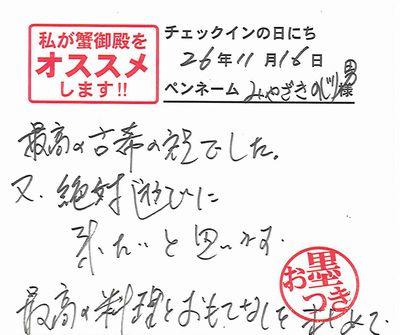 私が蟹御殿を
オススメ
します!!
チェックインの日にち
26年11月16日
ペンネーム みやざきの 男 様
最高の古希の祝でした。
又、絶対遊びに
来たいと思います。
お墨つき
最高の料理とおもてなしを 求めて